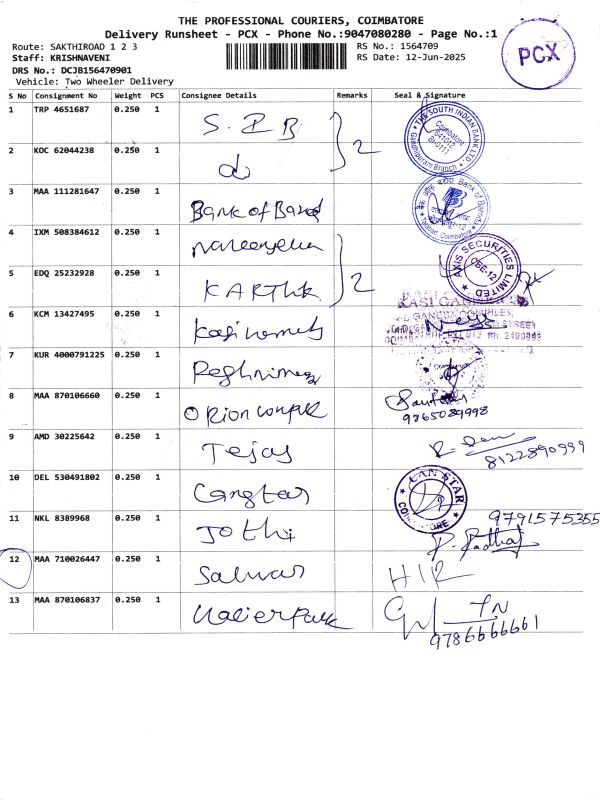 THE PROFESSIONAL COURIERS, COIMBATORE
Delivery Runsheet - PCX - Phone No.:9047080280 - Page No.:1
Route: SAKTHIROAD 1 2 3
RS No.: 1564709
Staff: KRISHNAVENI
RS Date: 12-Jun-2025
DRS No.: DCJB156470901
Vehicle: Two Wheeler Delivery
PCX
S No Consignment No Weight PCS Consignee Details Remarks Seal & Signature
1 TRP 4651687 0.250 1 S.I.B
THE SOUTH INDIAN BANK LTD.
Coimbatore
641012
Br-0111
Gandhipuram Branch
2 KOC 62044238 0.250 1 do 2
3 MAA 111281647 0.250 1 Bank of Barod
Bank of Baroda
4 IXM 508384612 0.250 1
AXIS SECURITIES LIMITED
CBE-12
5 EDQ 25232928 0.250 1 KARTHIK 2
6 KCM 13427495 0.250 1
7 KUR 4000791225 0.250 1
8 MAA 870106660 0.250 1 Orion
9865089998
9 AMD 30225642 0.250 1 Tejas
8122890999
10 DEL 530491802 0.250 1
CAN STAR
COIMBATORE
11 NKL 8389968 0.250 1 Jothi 9791575355
12 MAA 710026447 0.250 1
13 MAA 870106837 0.250 1
9786666661